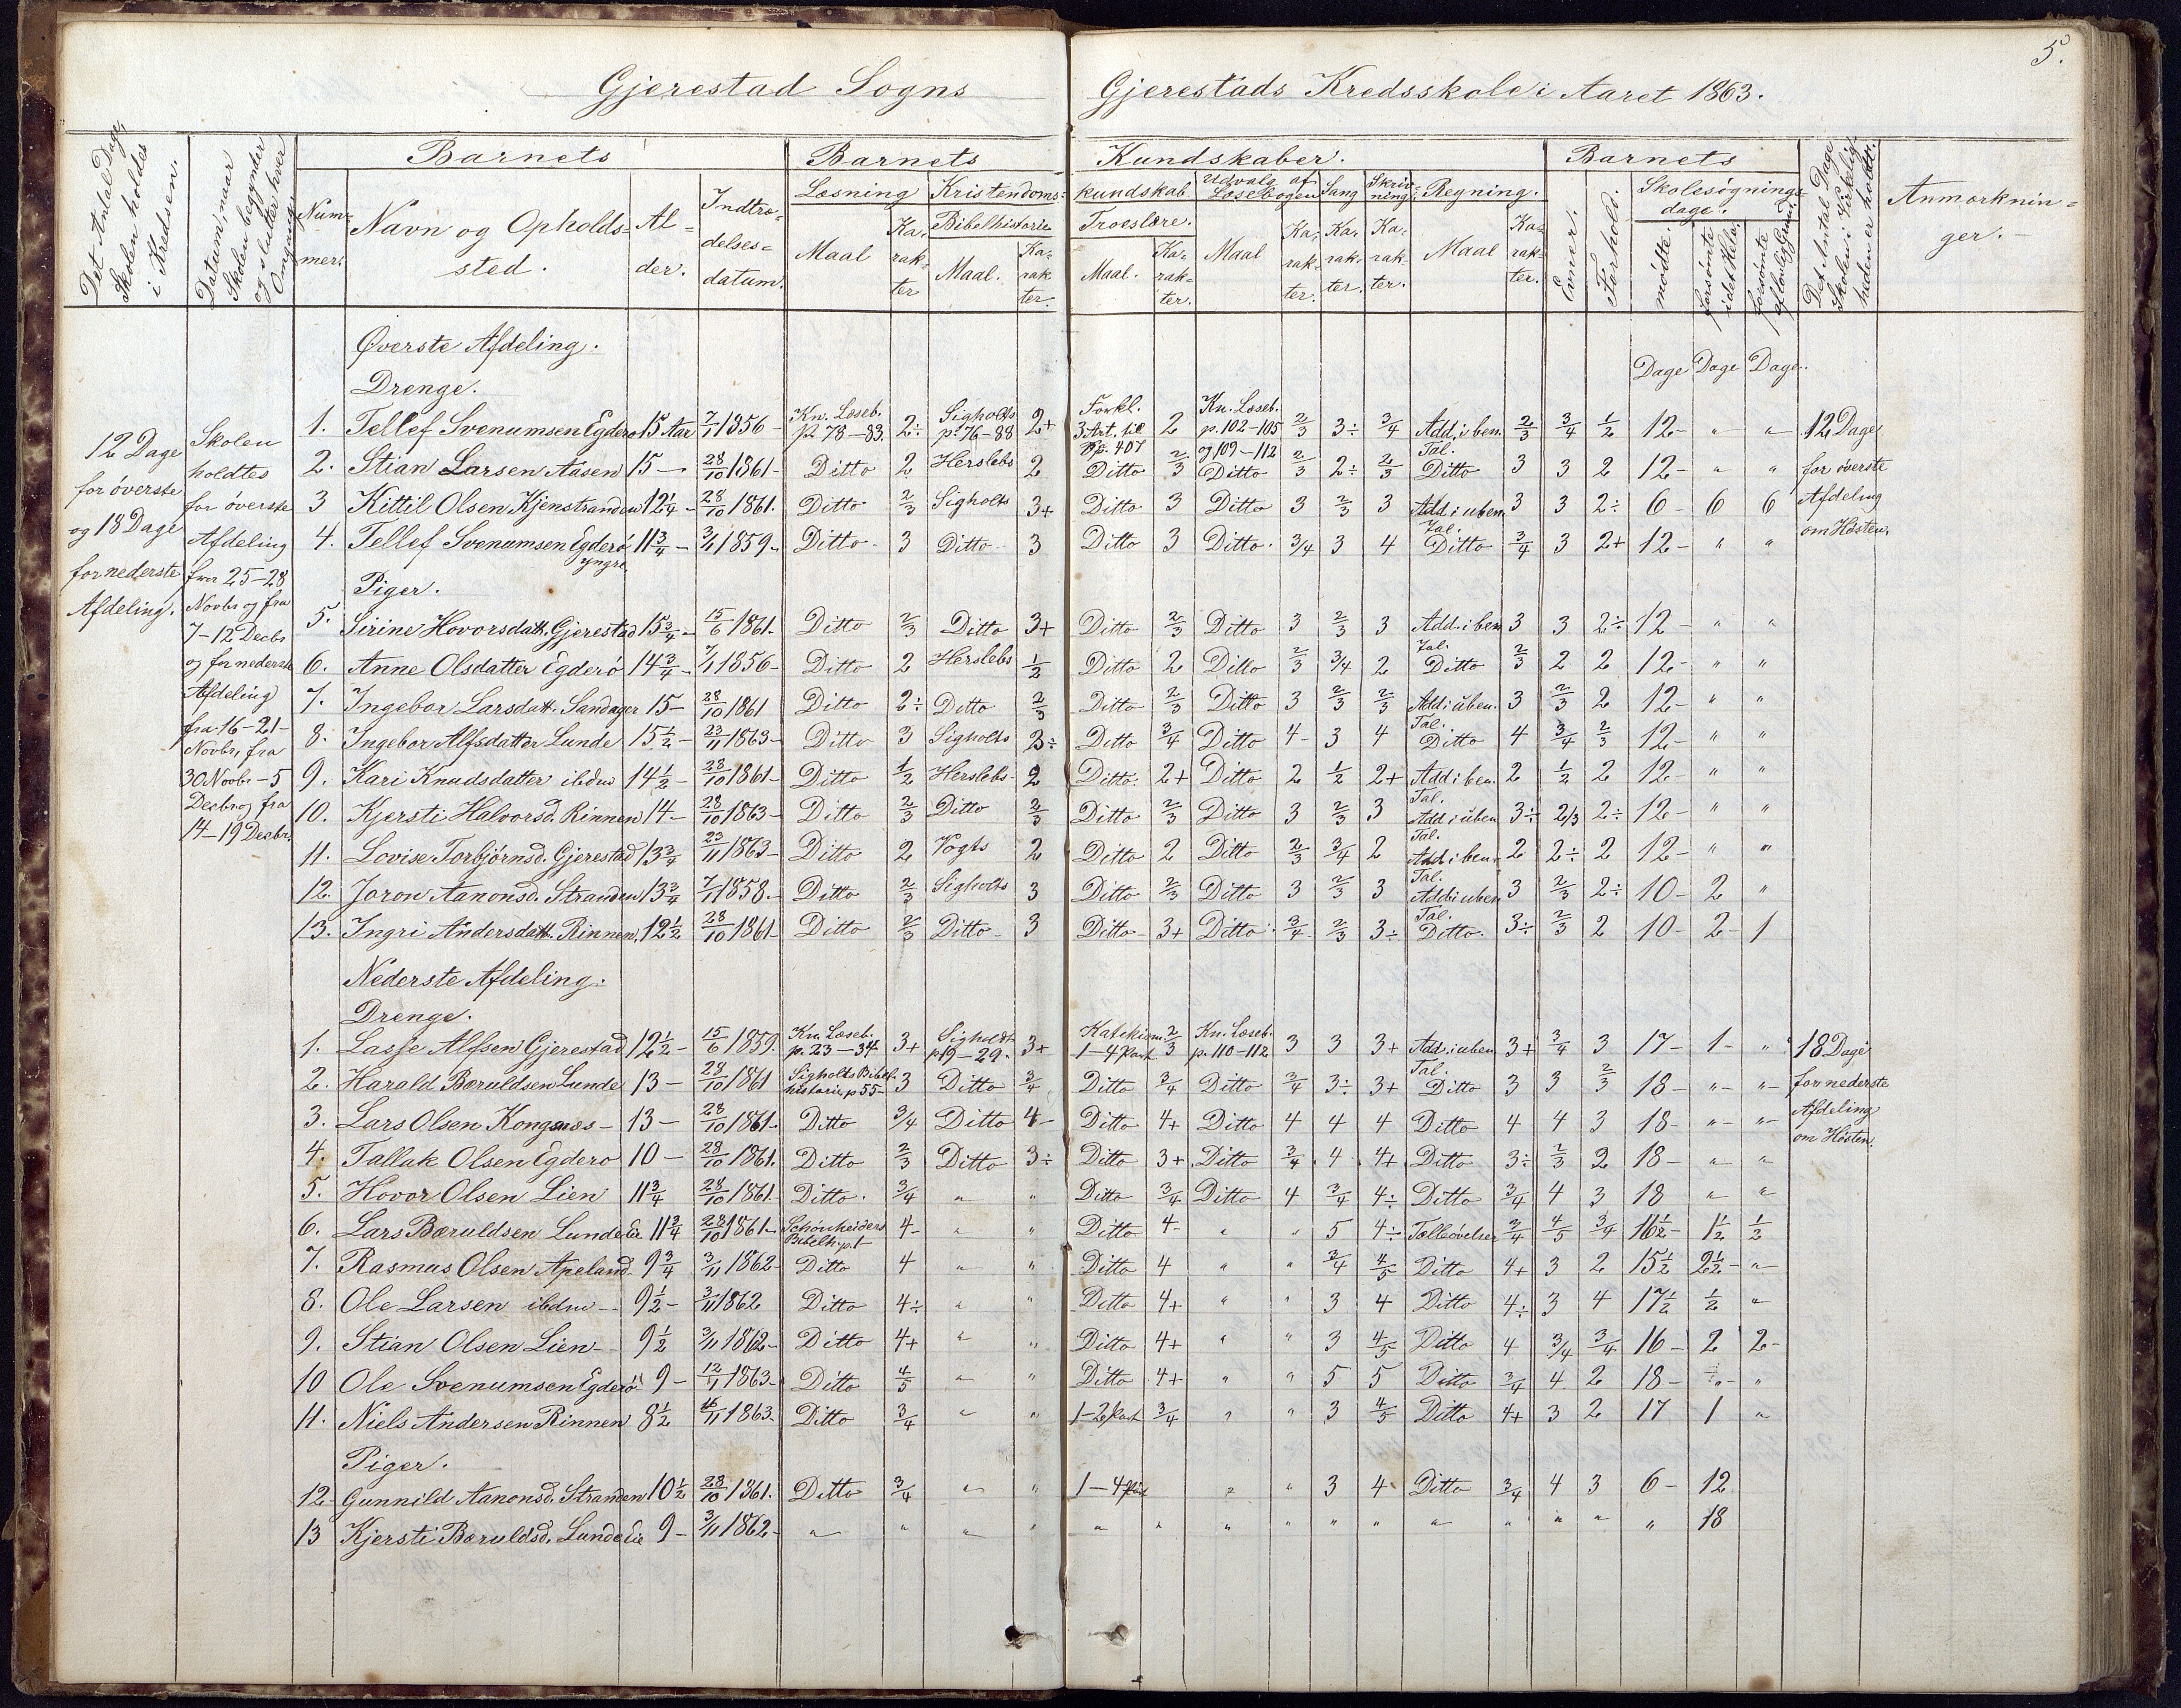 5.
Gjerestad Sogns Gjerestads Kredsskole i Aaret 1863.
Det Antal Dage, Skolen holdes i Kredsen.
Datum, naar Skolen begynder og slutter hver Omgang.
Barnets
Num-mer.
Navn og Opholds-sted.
Al-der.
Indtræ-delses-datum.
Barnets Kundskaber.
Læsning
Maal
Ka-rak-ter
Kristendoms-kundskab
Bibelhistorie
Maal.
Ka-rak-ter.
Troeslære.
Maal.
Ka-rak-ter.
Udvalg af Læsebogen
Maal
Ka-rak-ter.
Sang
Ka-rak-ter.
Skriv-ning
Ka-rak-ter.
Regning.
Maal
Ka-rak-ter.
Barnets
Evner.
Forhold.
Skolesøgnings-dage.
mødte.
forsømte i det Hele.
forsømte af lovlig Grund.
Det Antal Dage Skolen i Virkelig-heden er holdt.
Anmærknin-ger.-
12 Dage for överste og 18 Dage for nederste Afdeling.
Skolen holdtes for överste Afdeling fra 25-28 Novbr og fra 7-12 Decbr og for nederste Afdeling fra 16-21- Novbr, fra 30 Novbr-5 Decbr og fra 14-19 Decbr.
Øverste Afdeling.
Dage Dage Dage.
Drenge.
1. Tellef Svenumsen Egderö 15 Aar 7/1 1856- Kn. Læseb. p. 78-83. 2÷ Sigholts p. 76-88 2+ Forkl. 3 Art. til Sp. 407 2 Kn. Læseb. p. 102-105 og 109-112 2/3 3÷ 3/4 Add. i ben. Tal. 2/3 3/4 1/2 12- " " 12 Dage for överste Afdeling om Hösten.
2. Stian Larsen Aasen 15- 28/10 1861- Ditto 2 Herslebs 2 Ditto 2/3 Ditto 2/3 2÷ 2/3 Ditto 3 3 2 12- " "
3 Kittil Olsen Kjenstranden 12 1/4- 28/10 1861. Ditto 2/3 Sigholts 3+ Ditto 3 Ditto 3 2/3 3 Add i uben Tal. 3 3 2÷ 6- 6 6
4. Tellef Svenumsen Egderö yngre 11 3/4- 3/11 1859- Ditto 3 Ditto 3 Ditto 3 Ditto. 3/4 3 4 Ditto 3/4 3 2+ 12- " "
Piger.
5. Sirine Hovorsdatt. Gjerestad 15 3/4- 15/6 1861- Ditto 2/3 Ditto 3+ Ditto 2/3 Ditto 3 2/3 3 Add. i ben Tal. 3 3 2÷ 12- " "
6. Anne Olsdatter Egderö 14 3/4- 7/1 1856- Ditto 2 Herslebs 1/2 Ditto 2 Ditto 2/3 3/4 2 Ditto 2/3 2 2 12- " "
7. Ingebor Larsdatt. Sandager 15- 28/10 1861 Ditto 2÷ Ditto 2/3 Ditto 2/3 Ditto 3 2/3 2/3 Add i uben. Tal. 3 2/3 2 12- " "
8. Ingebor Alfsdatter Lunde 15 1/2- 23/11 1863- Ditto 3 Sigholts 3÷ Ditto 3/4 Ditto 4- 3 4 Ditto 4 3/4 2/3 12- " "
9. Kari Knudsdatter ibdm 14 1/2- 28/10 1861- Ditto 1/2 Herslebs- 2 Ditto. 2+ Ditto 2 1/2 2+ Add i ben. Tal. 2 1/2 2 12- " "
10. Kjersti Halvorsd. Rinnen 14- 28/10 1863- Ditto 2/3 Ditto 2/3 Ditto 2/3 Ditto 3 2/3 3 Add i uben Tal. 3÷ 2/3 2÷ 12- " "
11. Lovise Torbjørnsd. Gjerestad 13 3/4 23/11 1863- Ditto 2 Vogts 2 Ditto 2 Ditto 2/3 3/4 2 Add i ben. Tal. 2 2÷ 2 12- " "
12. Joron Aanonsd. Stranden 13 3/4 7/1 1858- Ditto 2/3 Sigholts 3 Ditto 2/3 Ditto 3 2/3 3 Add i uben Tal. 3 2/3 2÷ 10- 2 "
13. Ingri Andersdatt. Rinnen 12 1/2 28/10 1861- Ditto 2/3 Ditto- 3 Ditto- 3+ Ditto 3/4 2/3 3÷ Ditto. 3÷ 2/3 2 10- 2- 1
Nederste Afdeling.
Drenge.
1. Lasse Alfsen Gjerestad 12 1/2- 15/6 1859. Kn. Læseb. p. 23-34 3+ Sigholdt p 19-29. 3+ Katekism. 1-4 Part 2/3 Kn. Læseb. p. 110-112 3 3 3+ Add. i uben Tal. 3+ 3/4 3 17- 1- " 18 Dage for nederste Afdeling om Hösten.
2. Harald Bæruldsen Lunde 13- 28/10 1861 Sigholts Bibel-historie p 55- 3 Ditto 3/4 Ditto 3/4 Ditto 3/4 3÷ 3+ Ditto 3 3 2/3 18- " "
3. Lars Olsen Kongsnæs- 13- 28/10 1861- Ditto 3/4 Ditto 4- Ditto 4+ Ditto 4 4 4 Ditto 4 4 3 18- " "
4. Tallak Olsen Egderö 10- 28/10 1861. Ditto 2/3 Ditto 3÷ Ditto 3+ Ditto 3/4 4 4+ Ditto 3÷ 2/3 2 18- " "
5. Hovor Olsen Lien 11 3/4 28/10 1861- Ditto. 3/4 " " Ditto 3/4 Ditto 4 3/4 4÷ Ditto 3/4 4 3 18 " "
6. Lars Bæruldsen Lundeeie 11 3/4 28/10 1861- Schönheiders Bibelh. p. 1- 4- " " Ditto 4- " " 5 4÷ Tælleövelser 3/4 4/5 3/4 16 1/2- 1 1/2 1/2
7. Rasmus Olsen Apeland- 9 3/4 3/11 1862- Ditto 4 " " Ditto 4 " " 3/4 4/5 Ditto 4+ 3 2 15 1/2 2 1/2- "
8. Ole Larsen ibdm- 9 1/2- 3/11 1862 Ditto 4÷ " " Ditto 4+ " " 3 4 Ditto 4÷ 3 4 17 1/2 1/2 "
9. Stian Olsen Lien- 9 1/2 3/11 1862- Ditto 4+ " " Ditto 4+ " " 3 4/5 Ditto 4 3/4 3/4 16- 2 2-
10 Ole Svenumsen Egderö 9- 12/1 1863- Ditto 4/5 " " Ditto 4+ " " 5 5 Ditto 3/4 4 2 18- " "
11. Niels Andersen Rinnen 8 1/2 16/11 1863. Ditto 3/4 " " 1-2 Part 3/4 " " 3 4/5 Ditto 4+ 3 2 17 1 "
Piger.
12- Gunnild Aanonsd. Stranden 10 1/2 28/10 1861. Ditto 3/4 " " 1-4 Part " " 3 4 Ditto 3/4 4 3 6- 12
13 Kjersti Bæruldsd. Lundeeie 9- 3/11 1862- " " " " " " " " " " " " " " " 18